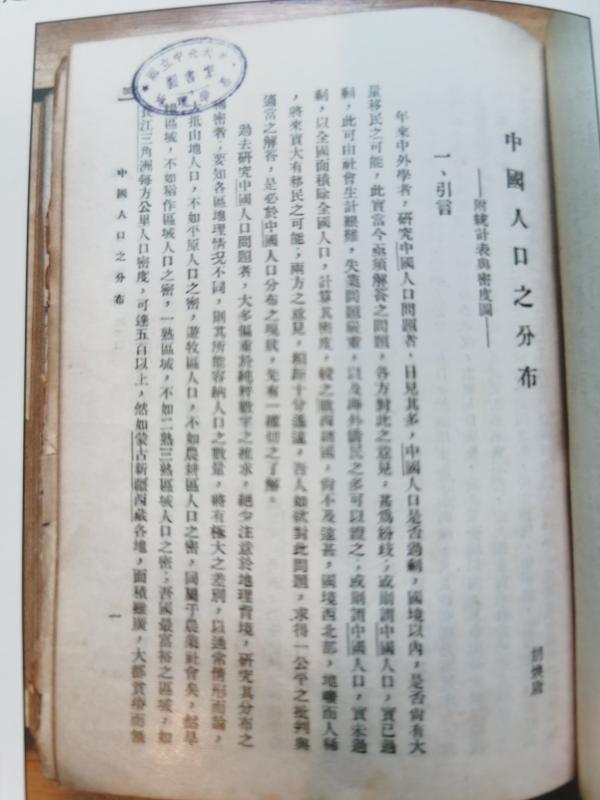 中國人口之分布
——附統計表與密度圖——
胡煥庸
一、引言
年來中外學者，研究中國人口問題者，日見其多，中國人口是否過剩，國境以內，是否尙有大
量移民之可能，此實當今亟須解答之問題，各方對此之意見，甚爲紛歧；或則謂中國人口，實已過
剩，此可由社會生計艱難，失業問題嚴重，以及海外僑民之多可以證之；或則謂中國人口，實未過
剩，以全國面積除全國人口，計算其密度，較之歐西諸國，尙不及遠甚，國境西北部，地曠而人稀
，將來實大有移民之可能；兩方之意見，相距十分遙遠，吾人如欲對此問題，求得一公平之批判與
適當之解答，是必於中國人口分布之現狀，先有一確切之了解。
過去研究中國人口問題者，大多偏重於純粹數字之推求，絕少注意於地理背境，研究其分布之
密者；要知各區地理情況不同，則其所能容納人口之數量，將有極大之差別，以通常情形而論，
抵山地人口，不如平原人口之密，遊牧區人口，不如農耕區人口之密，同屬于農業社會矣，然旱
區域，不如稻作區域人口之密，一熟區域，不如二熟三熟區域人口之密；吾國最富裕之區域，如
長江三角洲每方公里人口密度，可達五百以上，然如蒙古新疆西藏各地，面積雖廣，大都貧瘠而無
中國人口之分布
一
國立中央大
圖書室